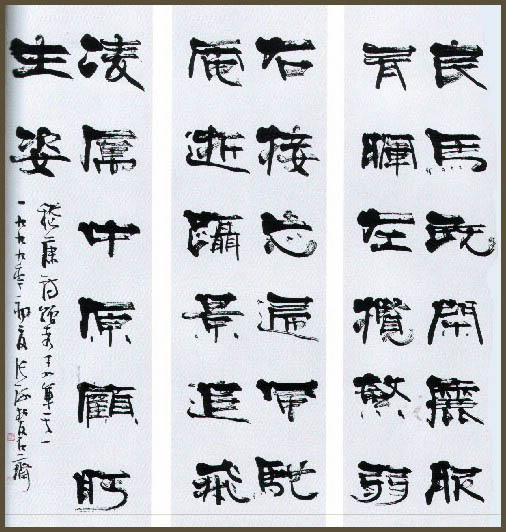 良馬既閑麗服
有暉左攬繁弱
右接忘歸風馳
電逝躡景追飛
凌厲中原顧盼
生姿
嵇康詩贈秀才入軍之一
一九九九年初夏張海